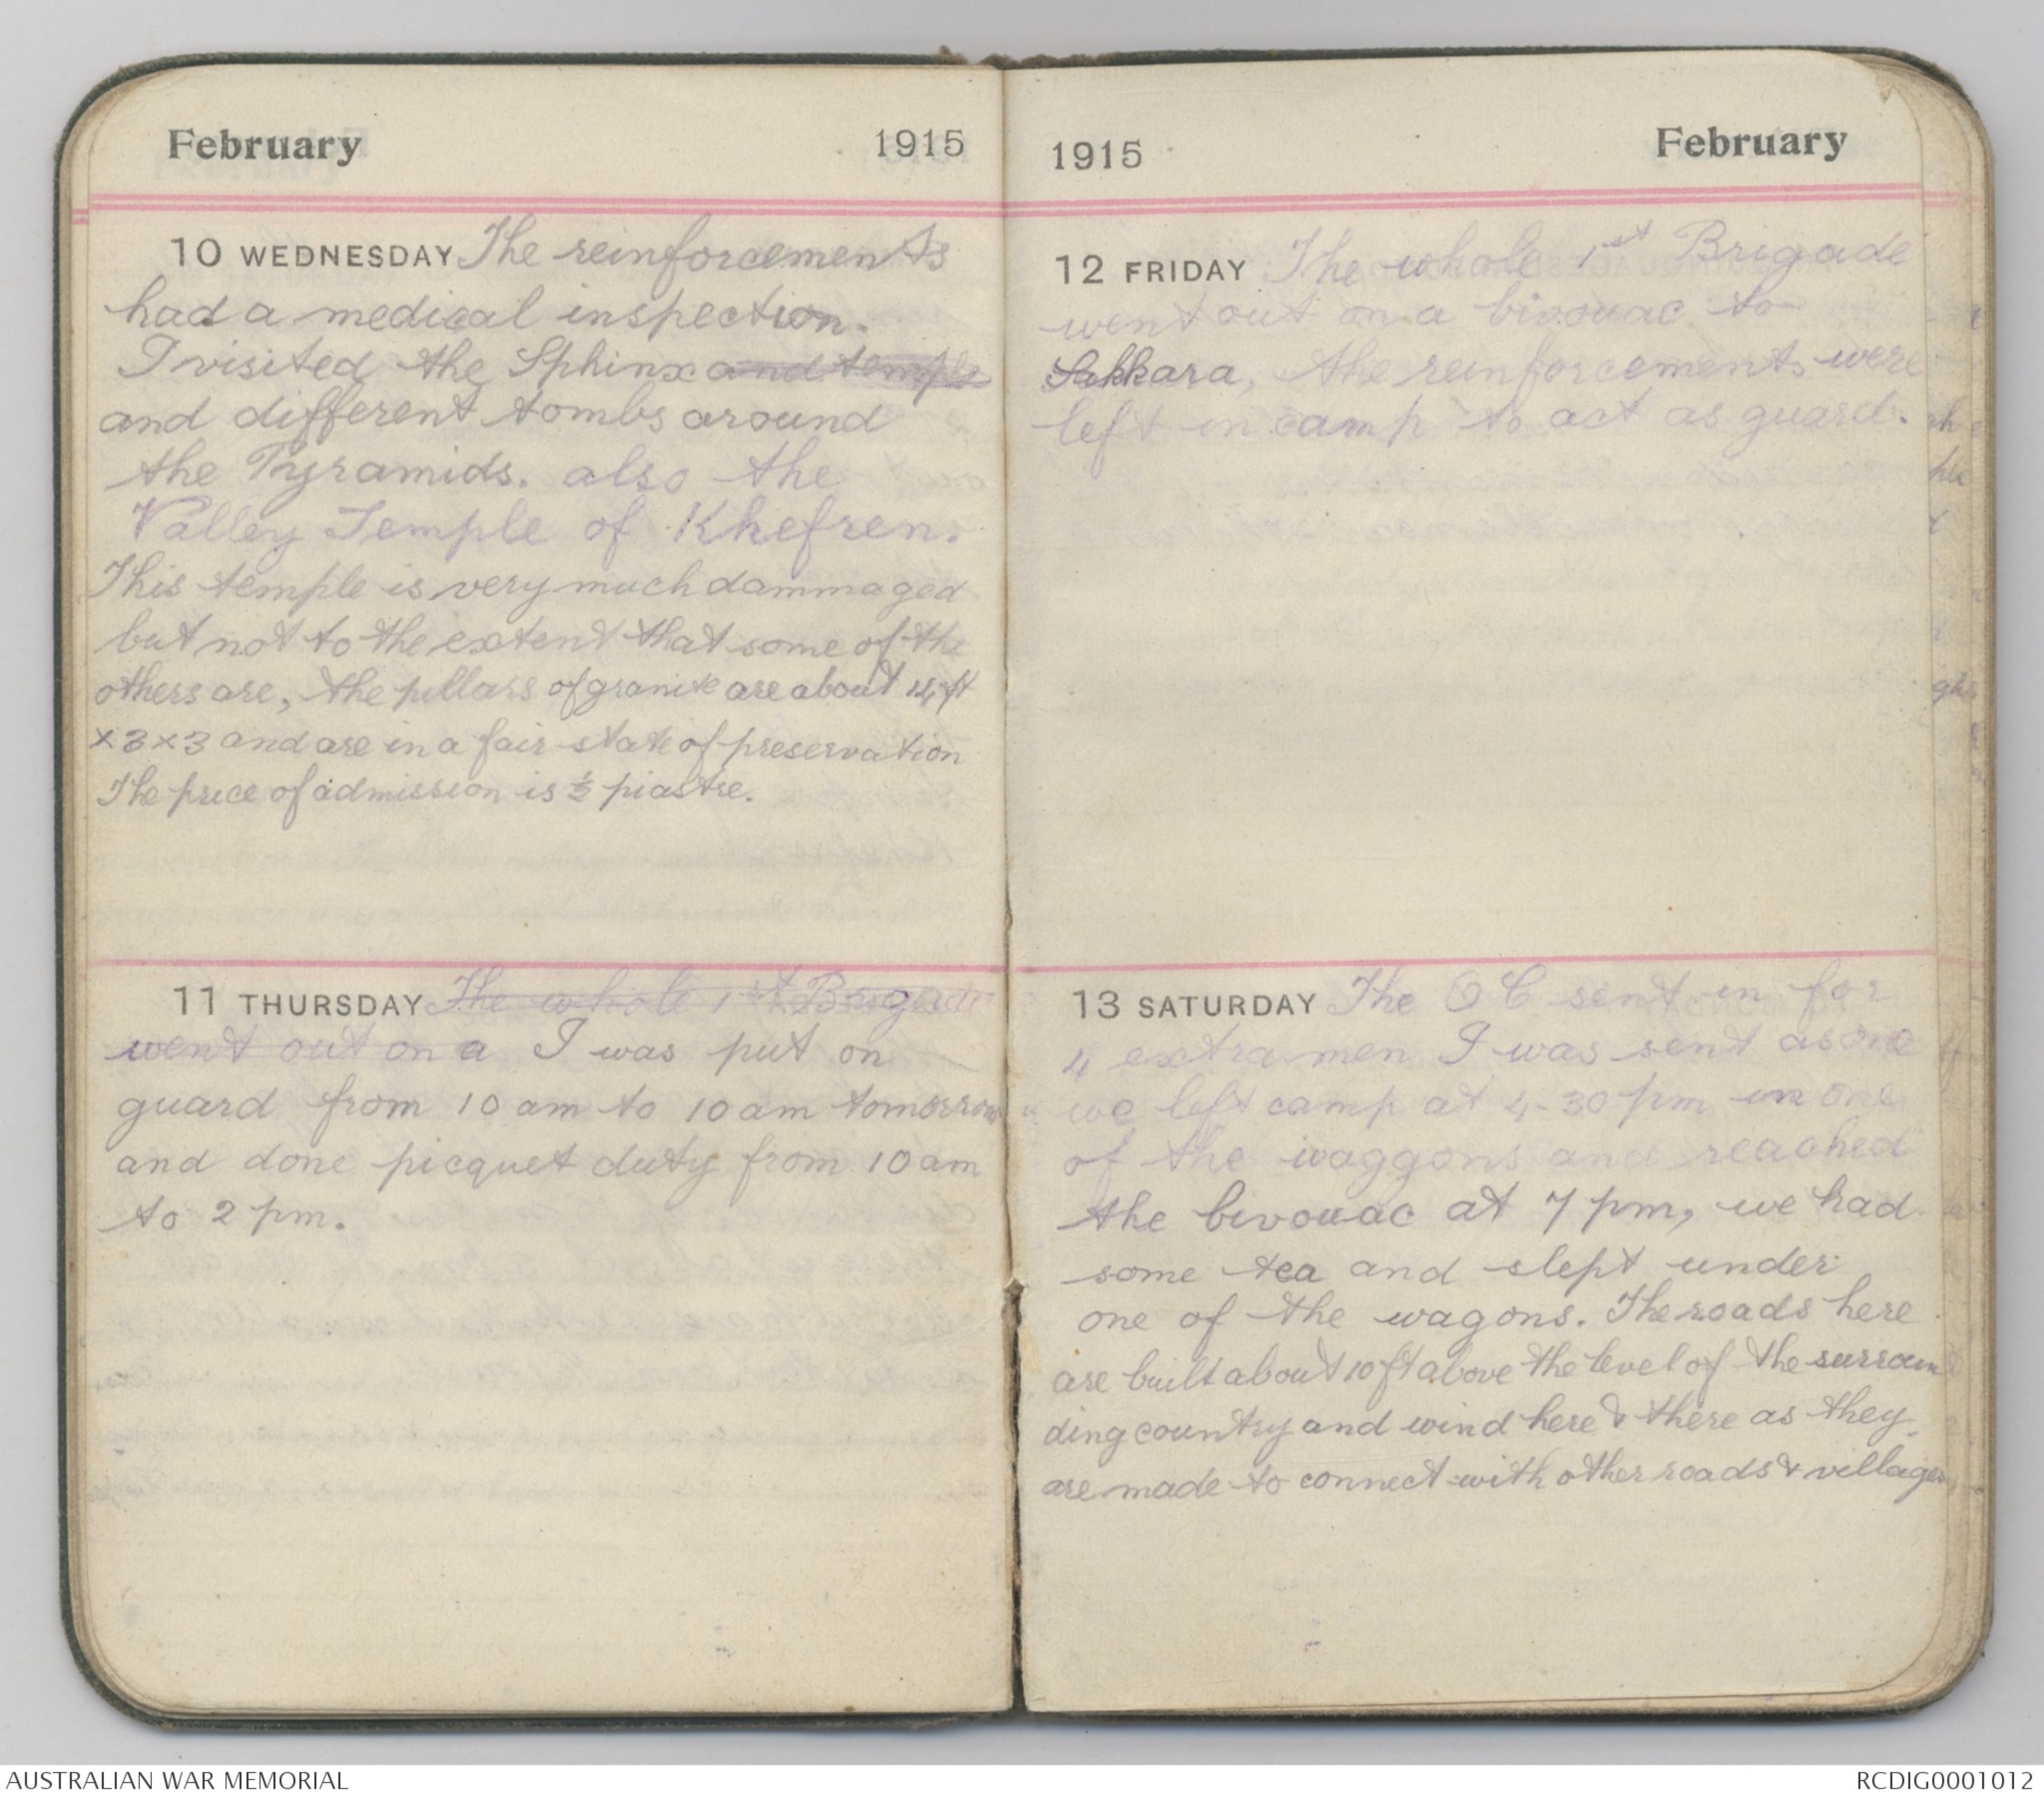 February 1915
10 WEDNESDAY The reinforcements
had a medical inspection.
I visited the Sphinx and temple
and different tombs around
the Pyramids. also the
Valley Temple of Khefren.
This temple is very much dammaged
but not to the extent that some of the
others are, the pillars of granite are about 14 ft
x 3 x 3 and are in a fair state of preservation
The price of admission is ½ piastre.
11 THURSDAY The whole 1st Brigade
went out on a I was put on
guard from 10 am to 10 am tomorrow
and done picquet duty from 10 am
to 2 pm.
1915 February
12 FRIDAY The whole 1st Brigade
went out on a bivouac to
Sakkara, the reinforcements were
left in camp to act as guard.
13 SATURDAY The O C sent in for
4 extra men I was sent as one
we left camp at 4-30 pm in one
of the waggons and reached
the bivouac at 7 pm, we had
some tea and slept under
one of the wagons. The roads here
are built about 10 ft above the level of the surroun
ding country and wind here & there as they
are made to connect with other roads & villages
AUSTRALIAN WAR MEMORIAL RCDIG0001012